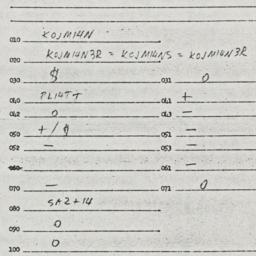 010 KOJMI4N
020 KOJMI4N3R = KOJMI4N5 = KOJMI4N3R
030 $ 031 0
040 PLI4TT 041 +
042 0 043 –
050 + / $ 051 –
052 – 053 –
060 061 –
070 – 071 0
080 SA2+14
090 0
100 0